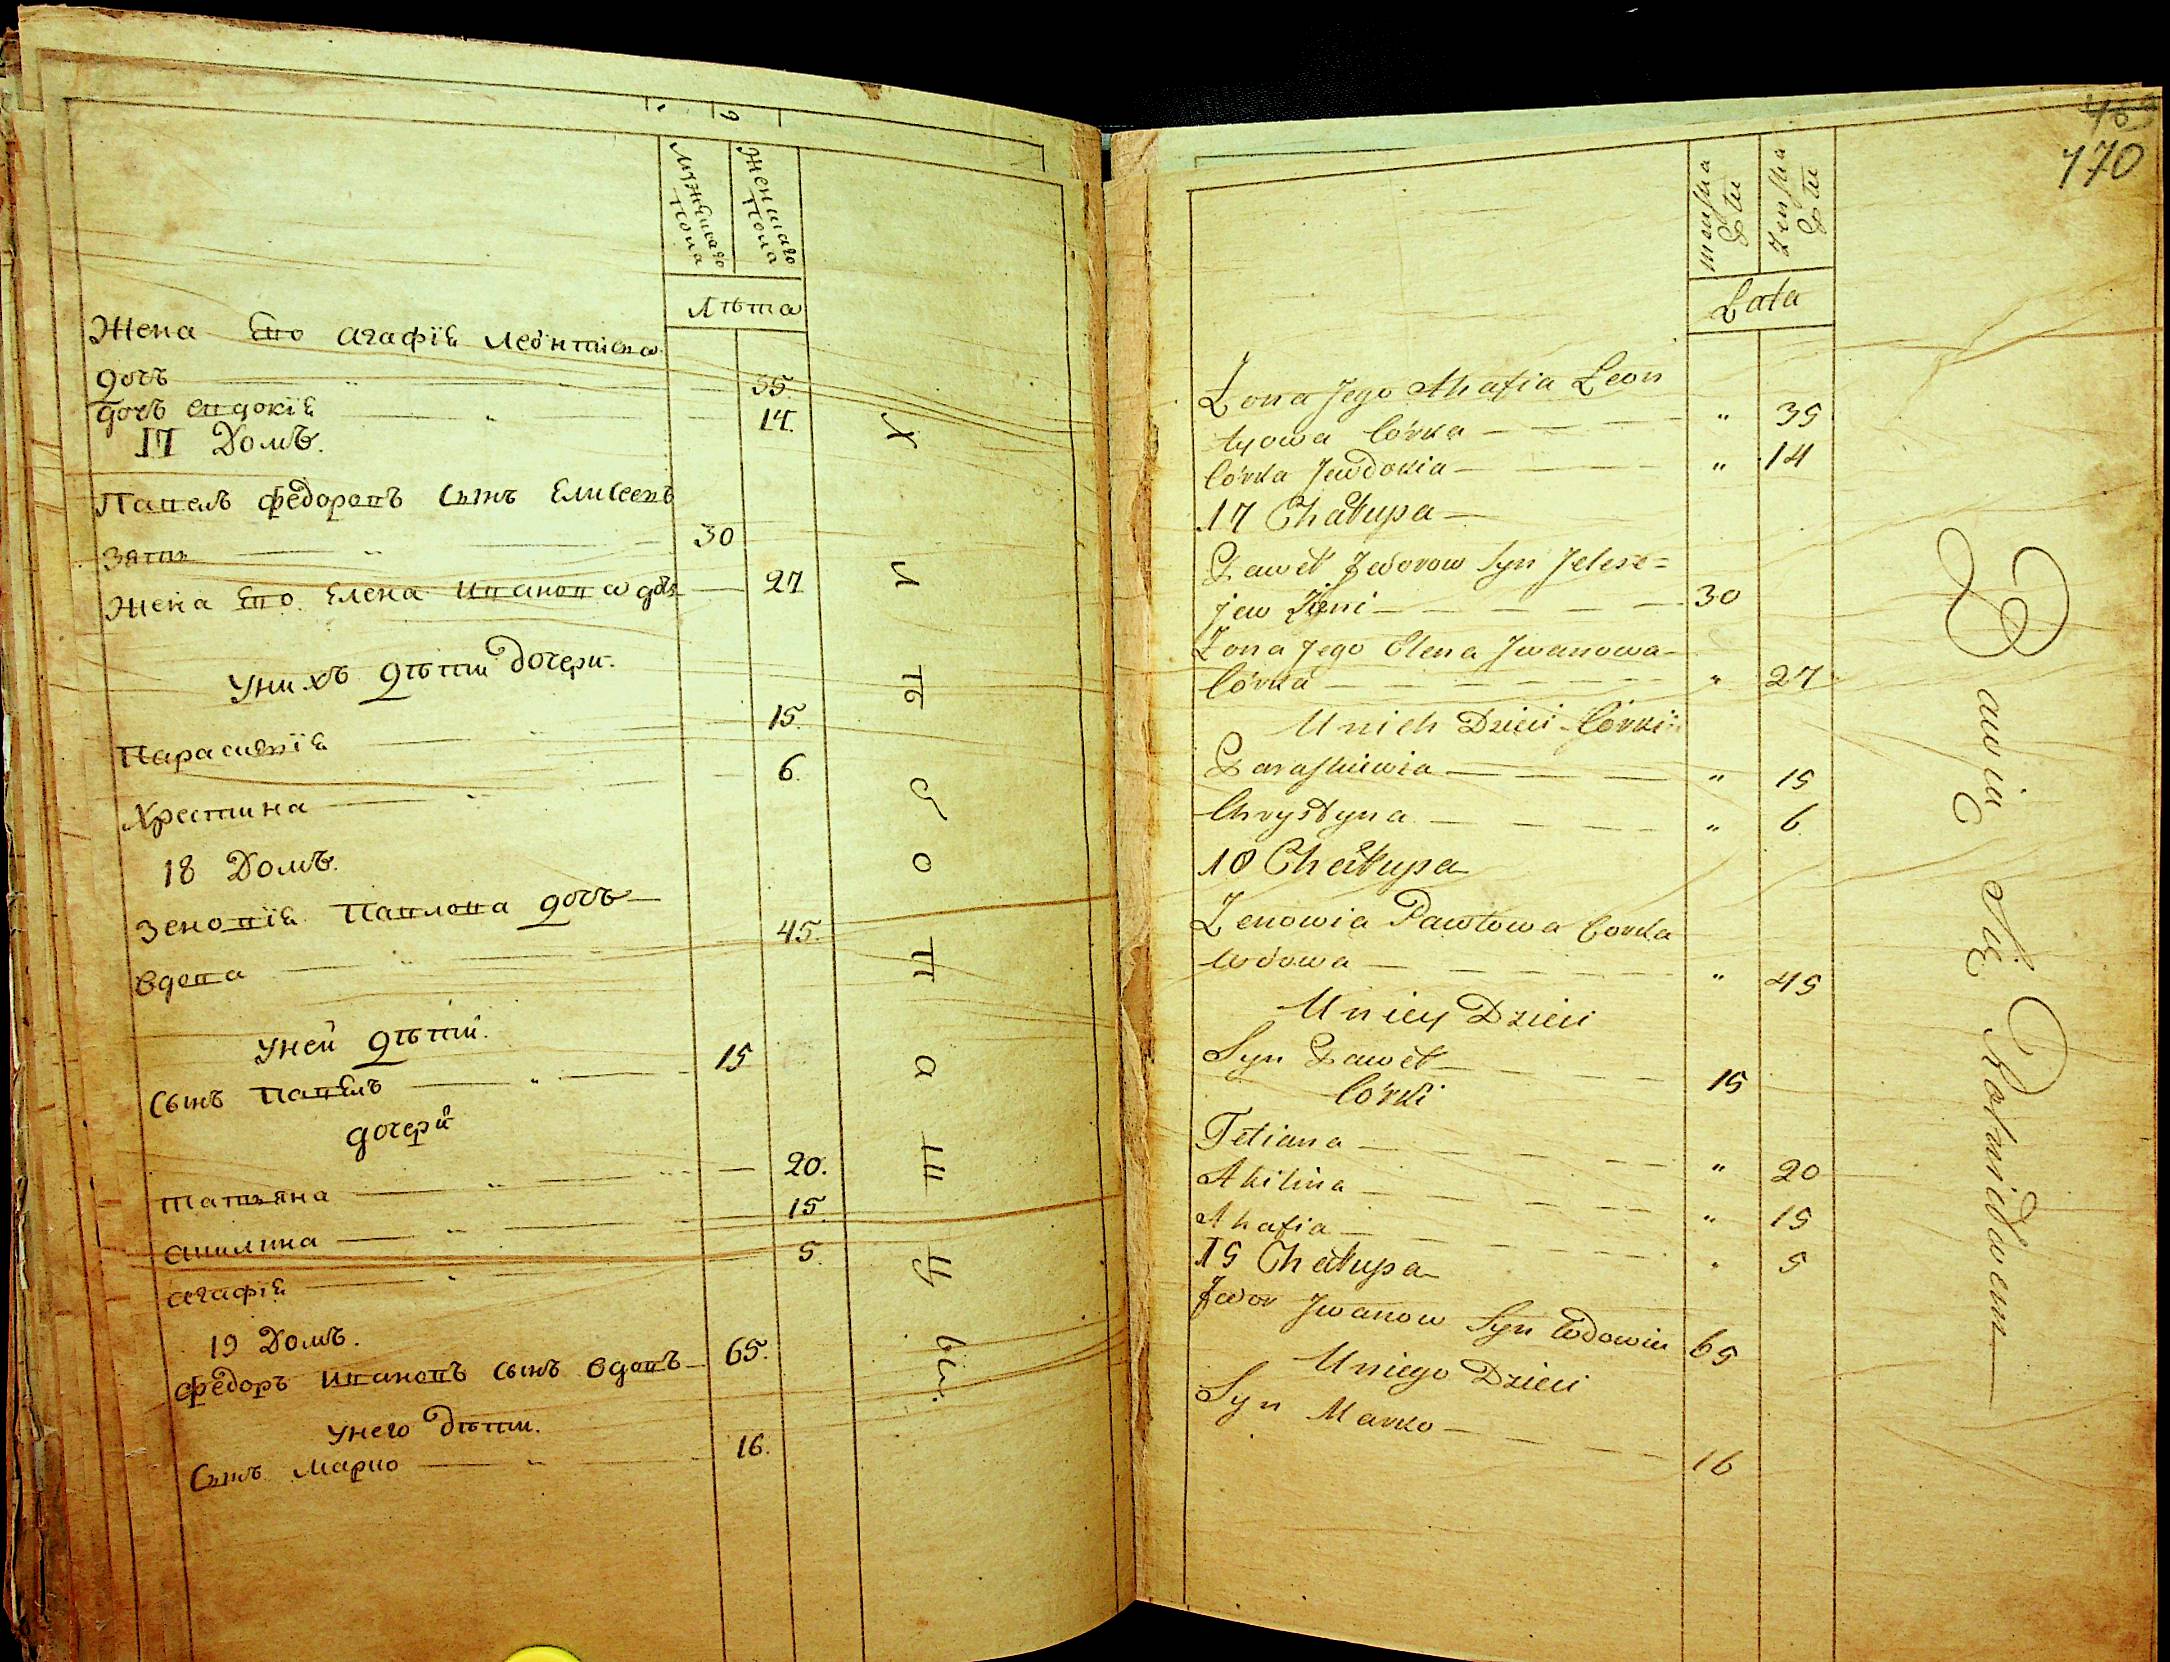 Мужескаго
пола
Женскаго
пола
Лѣта
Жена Его Агафїѧ Леонтиева
дочъ — „ — 35.
дочъ Евдокїѧ — „ — 14.
17 Домъ.
Павелъ Федоровъ Сынъ Елисеевъ
Зять — „ — 30
Жена Его Елена Иванова дочъ — 27
Унихъ Дѣти дочери.
Параскевїѧ — 15.
Христина — „ — 6.
18 Домъ.
Зеновїѧ Павлова дочъ —
Вдова — „ — 45.
Уней Дѣти.
Сынъ Павелъ — „ — 15
дочери
Татьяна — „ — 20.
Акилина — „ — 15.
Агафїѧ — „ — 5.
19 Домъ.
Федоръ Ивановъ Сынъ Вдовъ — 65.
Унего Дѣти.
Сынъ Марко — „ — 16.
Х л ѣ б о п а ш ц ы.
170
męska
Płci
Żeńska
Płci
Lata
Żona Jego Ahafia Leon
tyowa Córka — „ 35
Córka Jewdokia — „ 14
17 Chałupa —
Paweł Fedorow Syn Jelese=
jew — 30
Żona Jego Elena Jwanowa —
Córka — „ 27
Unich Dzieci Córki
Paraskiewia — „ 15
Chrystyna — „ 6
18 Chałupa
Zenowia Pawłowa Corka
Wdowa — „ 45
Uniey Dzieci
Syn Paweł — 15
Córki
Tetiana — „ 20
Akilina — „ 15
Ahafia — „ 5
19 Chałupa
Fedor Jwanow Syn Wdowiec 65
Uniego Dzieci
Syn Marko — 16
Bawią Się Rolnidwem —